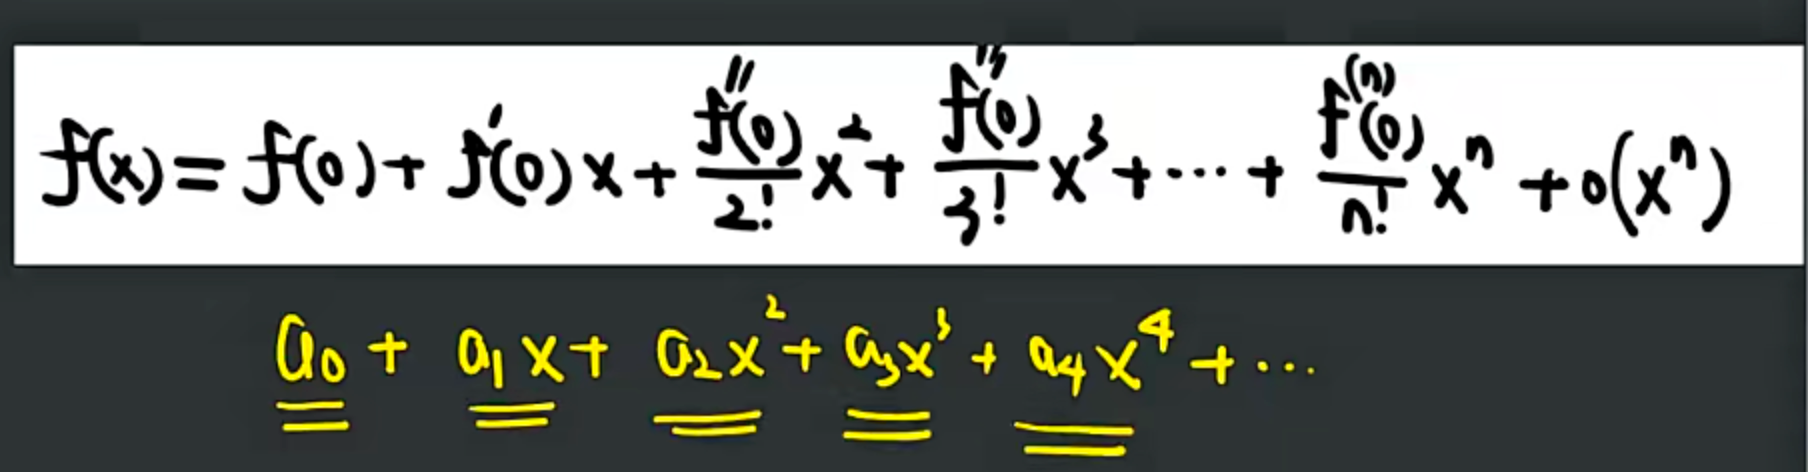 f(x) = f(0) + f'(0)x + f''(0)/2! x² + f'''(0)/3! x³ + ··· + f⁽ⁿ⁾(0)/n! xⁿ + o(xⁿ)
a₀ + a₁x + a₂x² + a₃x³ + a₄x⁴ + ···